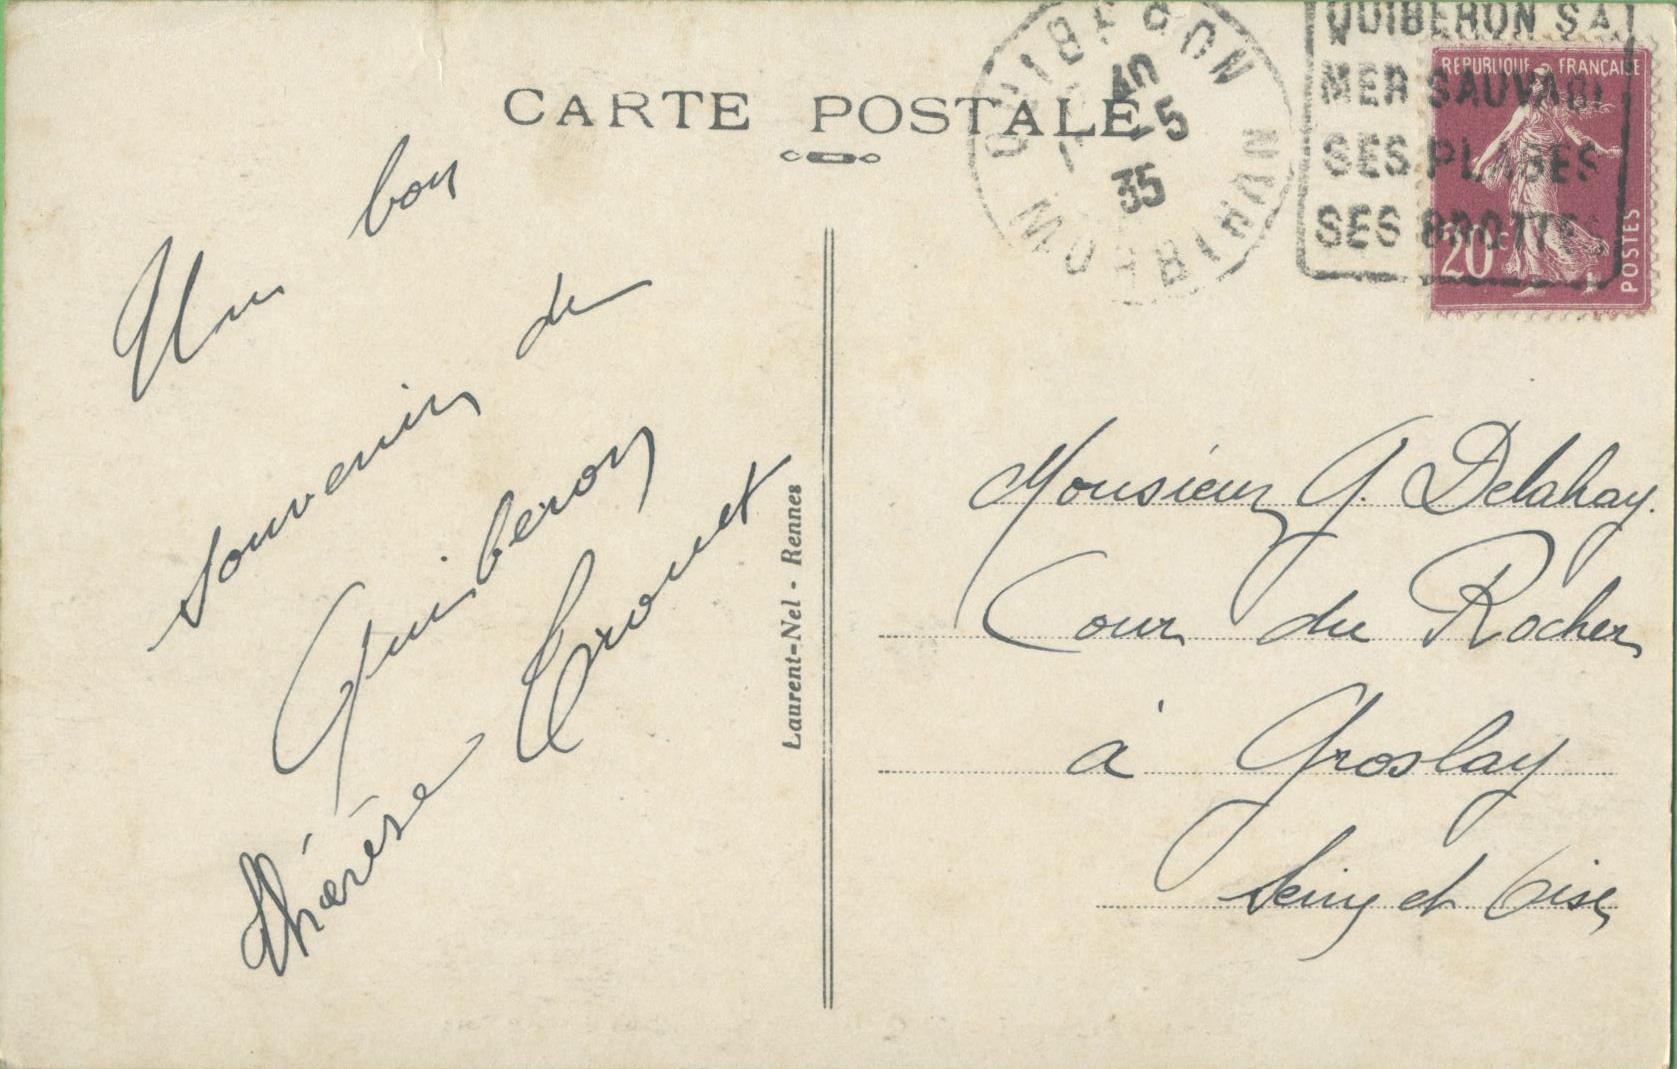 CARTE POSTALE
Un bon
souvenir de
Quiberon
Thérèse
Laurent-Nel - Rennes
QUIBERON
5
35
MORBIHAN
QUIBERON SA
MER SAUVAGE
SES PLAGES
SES GROTTES
REPUBLIQUE FRANÇAISE
20
POSTES
Monsieur G. Delahay.
Cour du Rocher
à Groslay
Seine et Oise